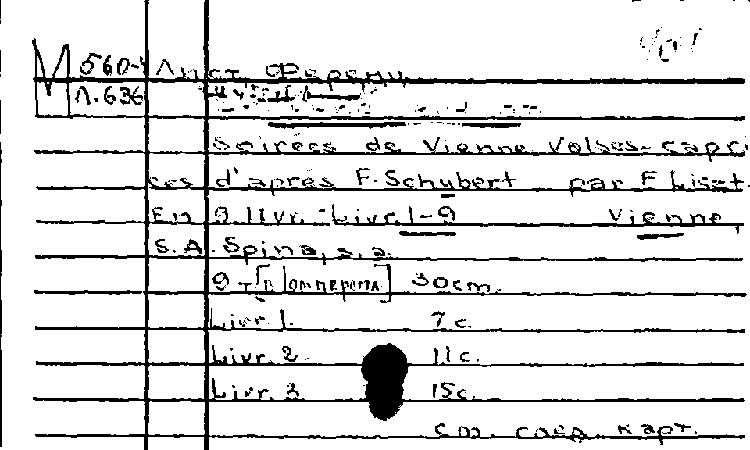 М 560-4 Лист, Ференц
Л. 636
Soirées de Vienne. Valses-capri
ces d'après F. Schubert par F. Liszt.
En 9 livr. Livr. 1-9 Vienne,
S. A. Spina, s. a.
9 т. [в 1 общ. перепл.] 30 cm.
Livr. 1. 7 c.
Livr. 2 11 c.
Livr. 3 15 c.
см. след. карт.